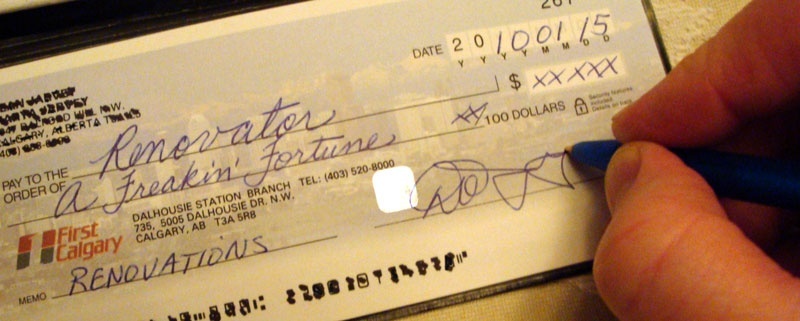 261
DATE 20100115
Y Y Y Y M M D D
$ XXXXX
PAY TO THE ORDER OF Renovator
A Freakin' Fortune XX/100 DOLLARS
Security features included. Details on back.
First Calgary
DALHOUSIE STATION BRANCH TEL: (403) 520-8000
735, 5005 DALHOUSIE DR. N.W.
CALGARY, AB T3A 5R8
MEMO RENOVATIONS